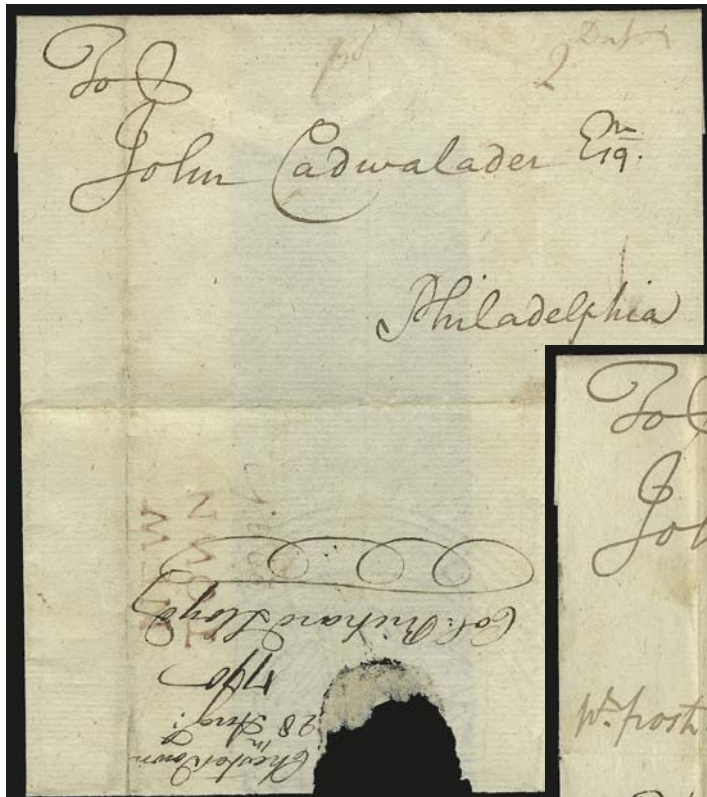 To
John Cadwalader Esqr.
Philadelphia
NEW
TOWN
Col: Richard Lloyd
1770
28 Aug:
Chester Town
To
Joh
pr. post